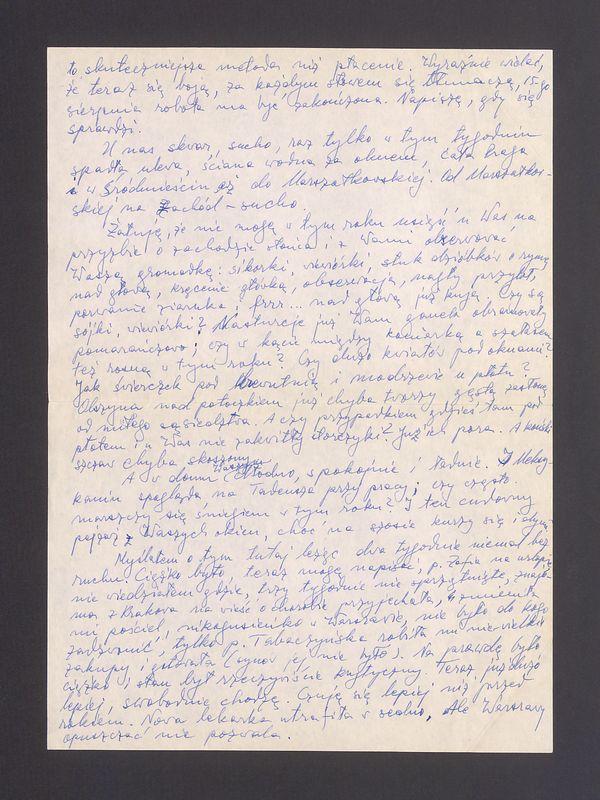 to skuteczniejsza metoda niż płacenie. Wyraźnie widać,
że teraz się boją, za każdym słowem się tłumaczą, 15-go
sierpnia robota ma być zakończona. Napiszę, gdy się
sprawdzi.
U nas skwar, sucho, raz tylko w tym tygodniu
spadła ulewa, ściana wodna za oknem, cała Praga
i w Śródmieściu aż do Marszałkowskiej. Od Marszałkow-
skiej na Zachód - sucho.
Żałuję, że nie mogę w tym roku usiąść u Was na
przyzbie o zachodzie słońca i z Wami obserwować
Waszą gromadkę: sikorki, wiewiórki, stuk dzióbków o rynnę
nad głową, kręcenie główką, obserwacja, nagły przylot,
porwanie ziarnka i frrr... nad głową już kują. Czy są
sójki, wiewiórki? Nasturcje już Wam ganek obramowały
pomarańczowo; czy w kącie między komórką a szałasem
też rosną w tym roku? Czy dużo kwiatów pod oknami?
Jak świerczek pod i modrzewie u płotu?
Olszyna nad potoczkiem już chyba tworzy gęstą zasłonę
od miłego sąsiedztwa. A czy przypadkiem gdzieś tam pod
płotem i u Was nie zakwitły storczyki? Już ich pora. A koński
szczaw chyba skoszony.
A w domu Waszym chłodno, spokojnie i ładnie. I
spogląda na Tadeusza przy pracy; czy często
marszczy się śmiechem w tym roku? I ten cudowny
pejzaż z Waszych okien, choć na szosie kurzy się i dymi.
Myślałem o tym tutaj leżąc dwa tygodnie niemal bez
ruchu. Ciężko było, teraz mogę napisać, p. Zofia na urlopie,
nie wiedziałem gdzie, trzy tygodnie nie sprzątnięte, znajo-
ma z Krakowa na wieść o chorobie przyjechała, zmieniła
mi pościel, nikogusieńko w Warszawie, nie było do kogo
zadzwonić, tylko p. Tabaczyńska robiła mi niewielkie
zakupy i gotowała (synów jej nie było). Na prawdę było
ciężko i stan był rzeczywiście krytyczny. Teraz już dużo
lepiej, swobodnie chodzę. Czuję się lepiej niż przed
rokiem. Nowa lekarka utrafiła w sedno. Ale Warszawy
opuszczać nie pozwala.